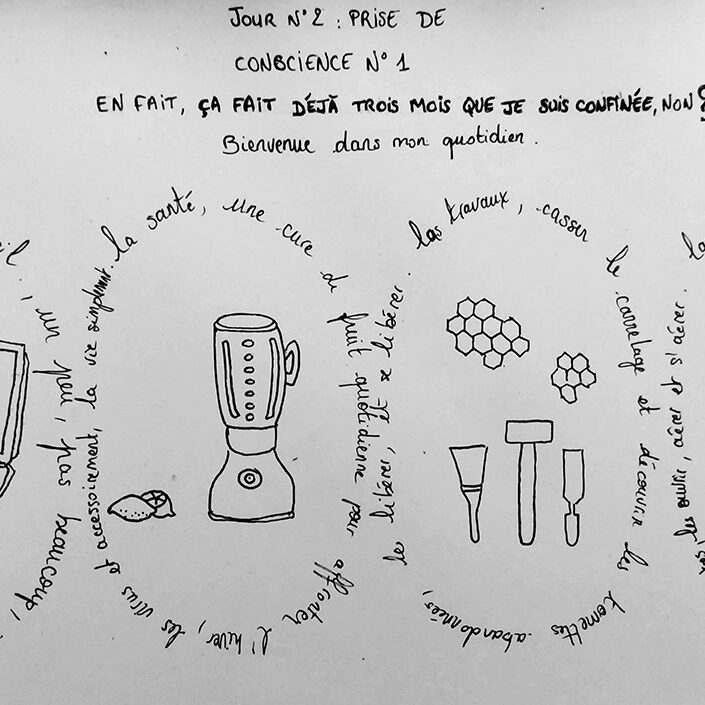 JOUR N°2 : PRISE DE
CONSCIENCE N° 1
EN FAIT, ÇA FAIT DÉJÀ TROIS MOIS QUE JE SUIS CONFINÉE, NON ?
Bienvenue dans mon quotidien.
un peu, pas beaucoup,
la santé, une cure de fruit quotidienne pour affronter l'hiver, les virus et accessoirement, la vie simplement.
les travaux, casser le carrelage et découvrir les tomettes abandonnées, les libérer, et se libérer.
les ouvrir, aérer et s'aérer.